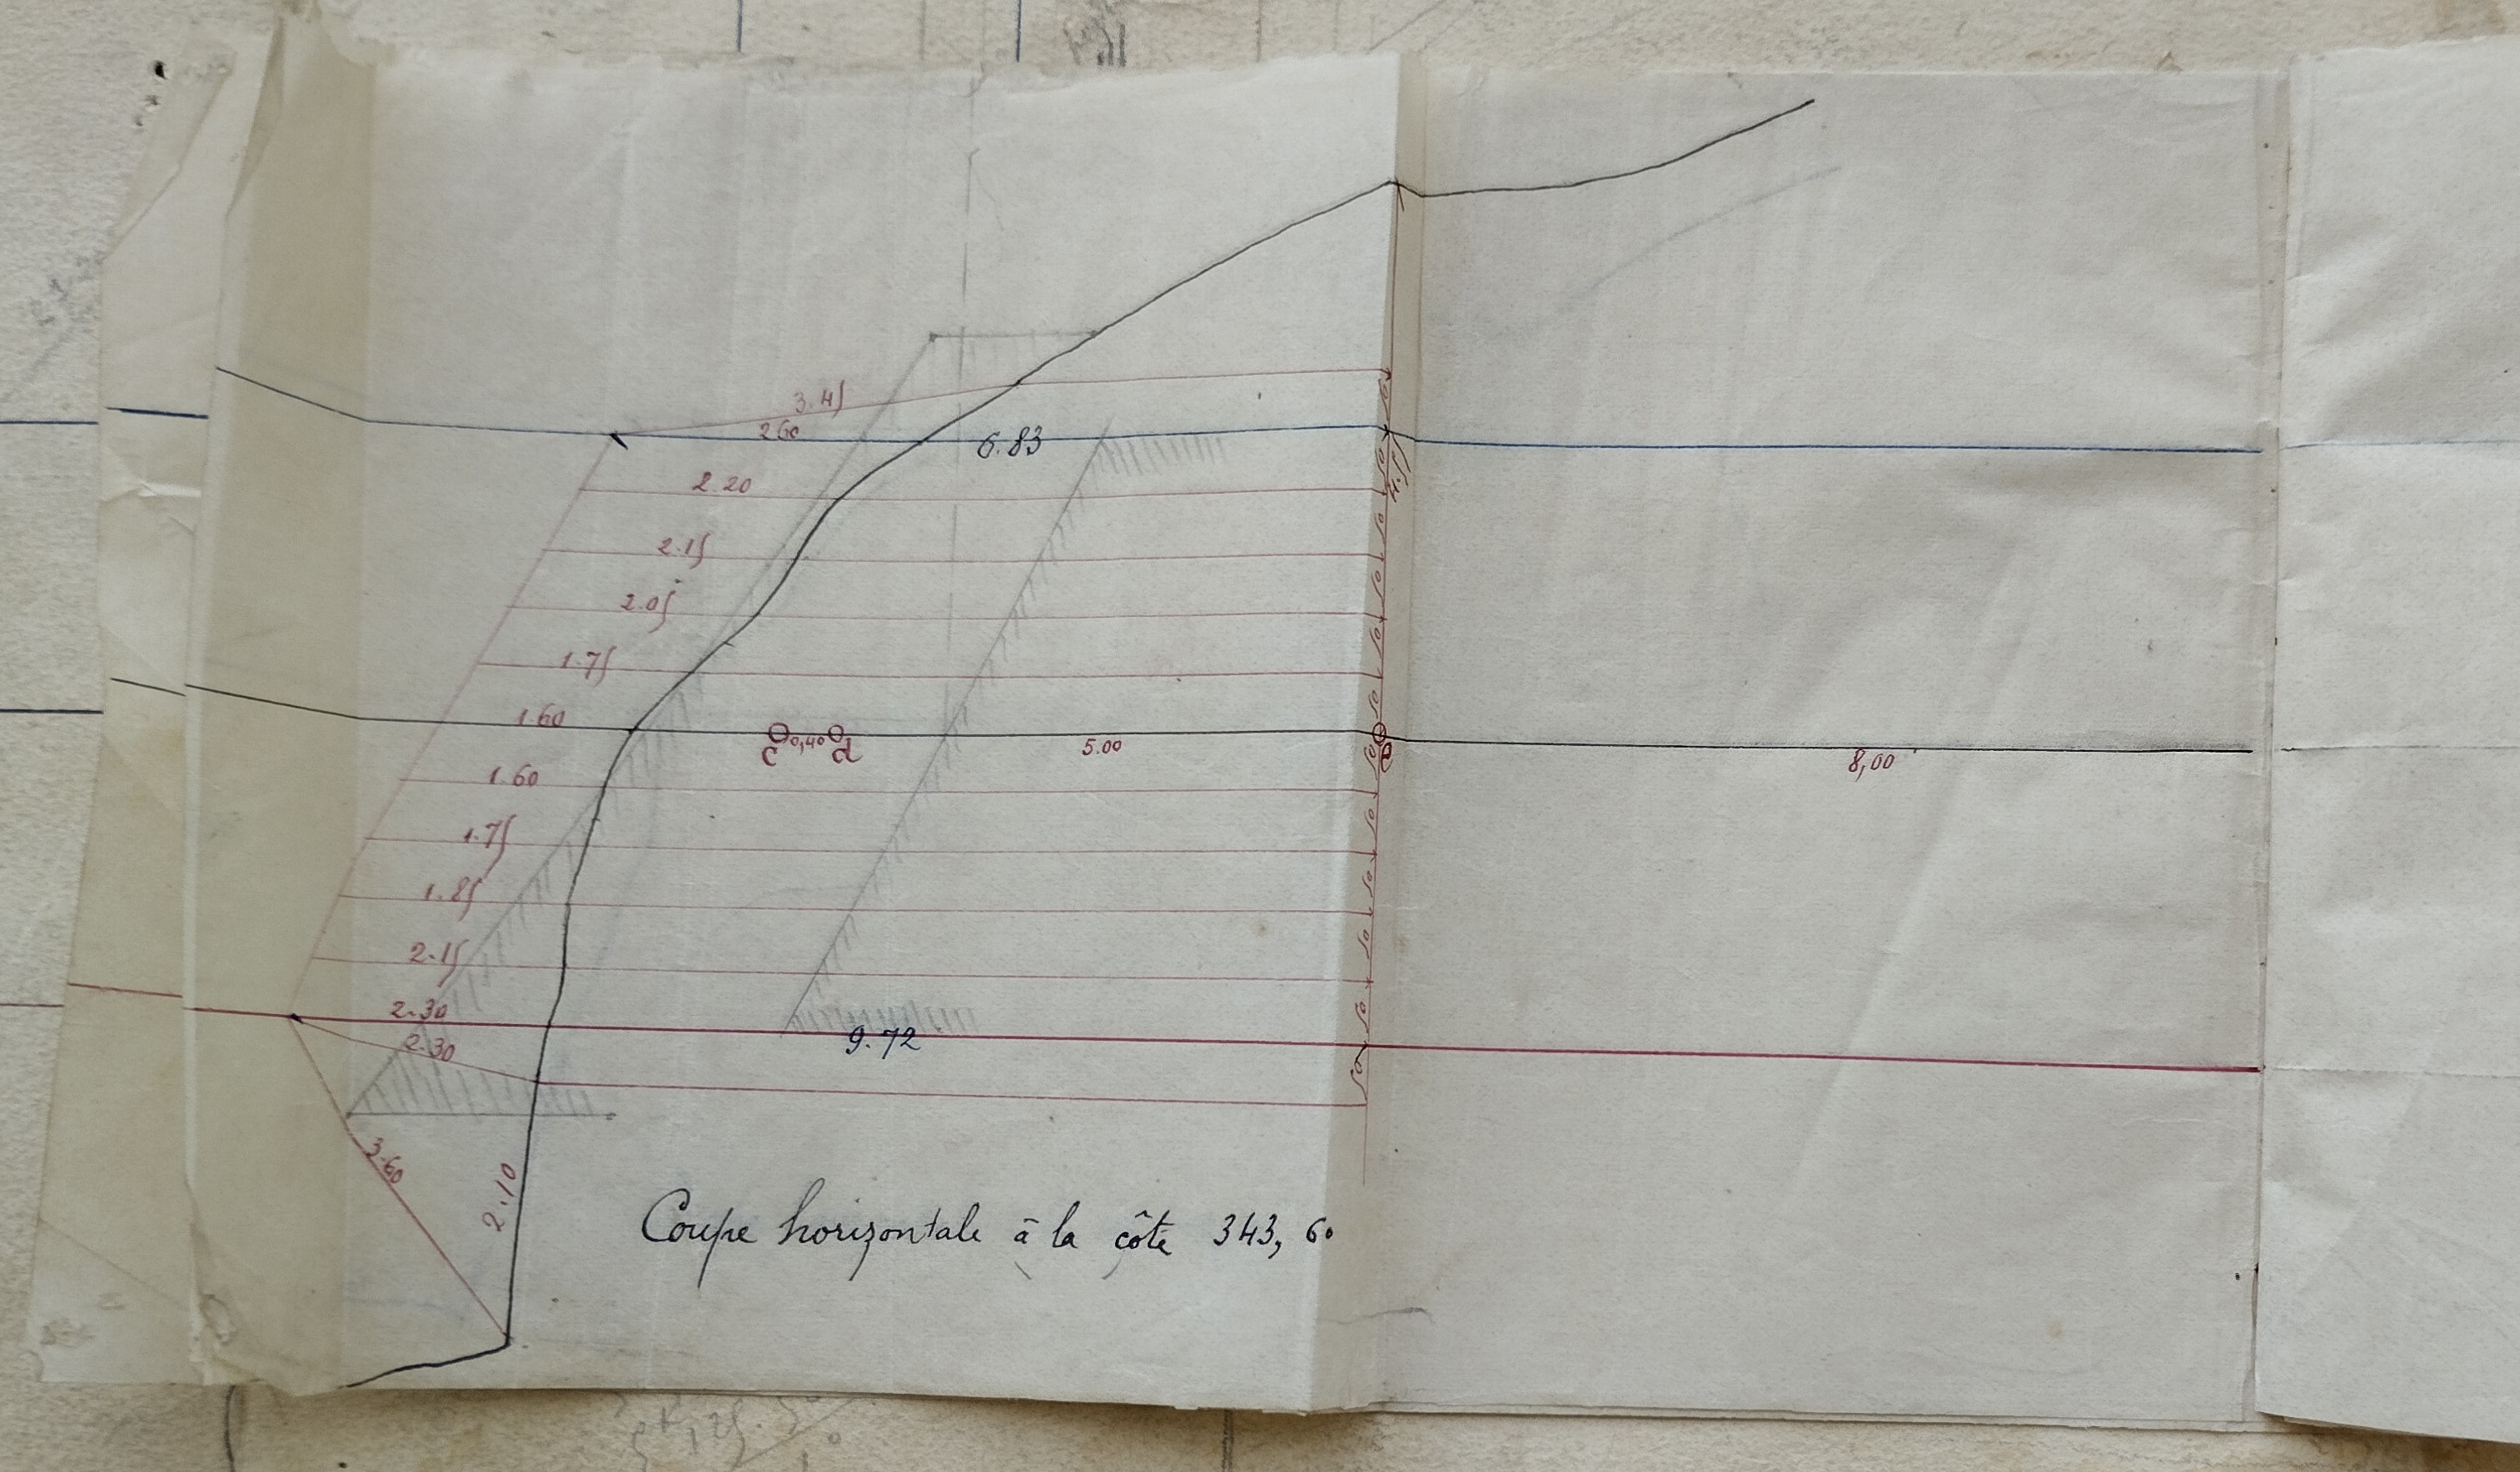 3.45
2.60
6.83
2.20
4.55
2.15
2.05
1.75
1.60
c 0,40 d
5.00
8,00
1.60
1.75
1.85
2.15
2.30
9.72
2.30
3.60
2.10
50
50
50
50
50
50
50
50
50
50
50
50
Coupe horizontale à la côte 343,60